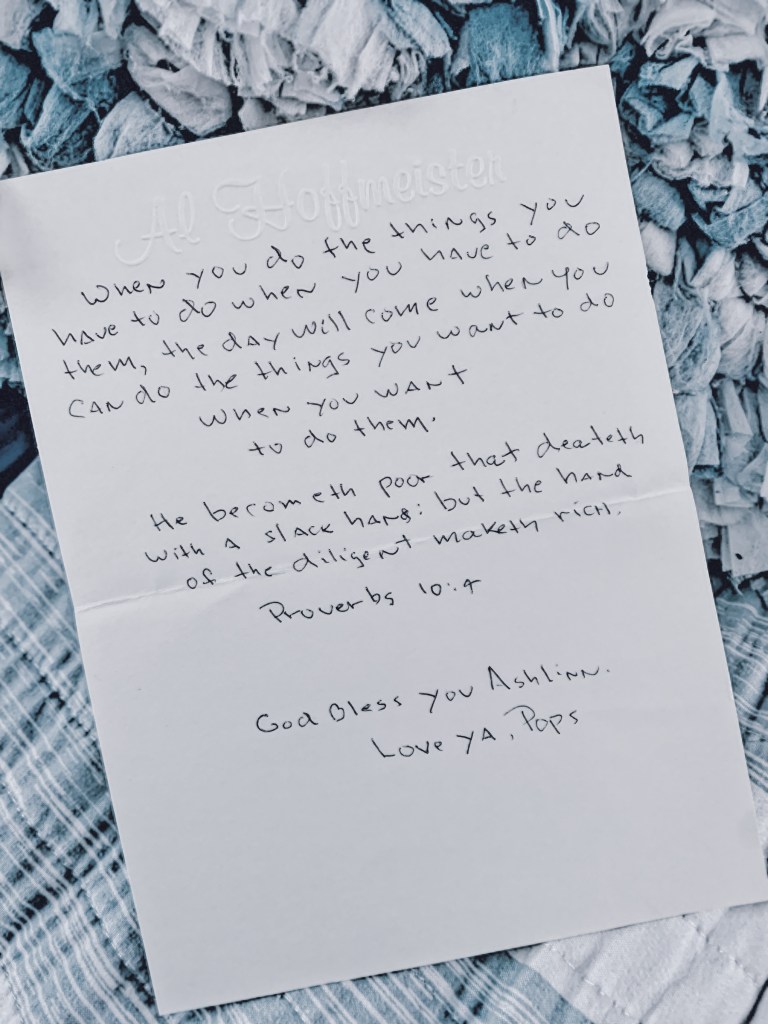 Al Hoffmeister
When you do the things you
have to do when you have to do
them, the day will come when you
can do the things you want to do
when you want
to do them.
He becometh poor that dealeth
with a slack hand: but the hand
of the diligent maketh rich.
Proverbs 10:4
God Bless you Ashlinn.
Love YA, Pops